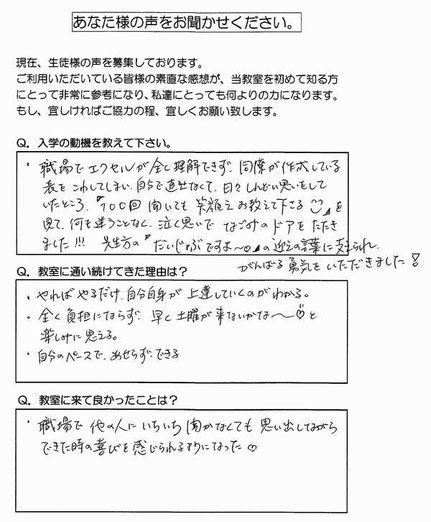 あなた様の声をお聞かせください。
現在、生徒様の声を募集しております。
ご利用いただいている皆様の素直な感想が、当教室を初めて知る方
にとって非常に参考になり、私達にとっても何よりの力になります。
もし、宜しければご協力の程、宜しくお願い致します。
Q. 入学の動機を教えて下さい。
・職場でエクセルが全く理解できず、同僚が作成している
表をこわしてしまい、自分で直せなくて、日々しんどい思いをして
いたところ、『100回聞いても笑顔でお教えて下さる』を
見て、何も迷うことなく、泣く思いで なごみのドアをたたき
ました!!! 先生方の『だいじょぶですよ〜♡』の迎えの言葉に支えられ、
がんばる勇気をいただきました!
Q. 教室に通い続けてきた理由は?
・やればやるだけ、自分自身が上達していくのがわかる。
・全く負担にならず、早く土曜が来ないかな〜♡と
楽しみに思える。
・自分のペースで、あせらずできる
Q. 教室に来て良かったことは?
・職場で他の人にいちいち聞かなくても思い出しながら
できた時の喜びを感じられるようになった♡